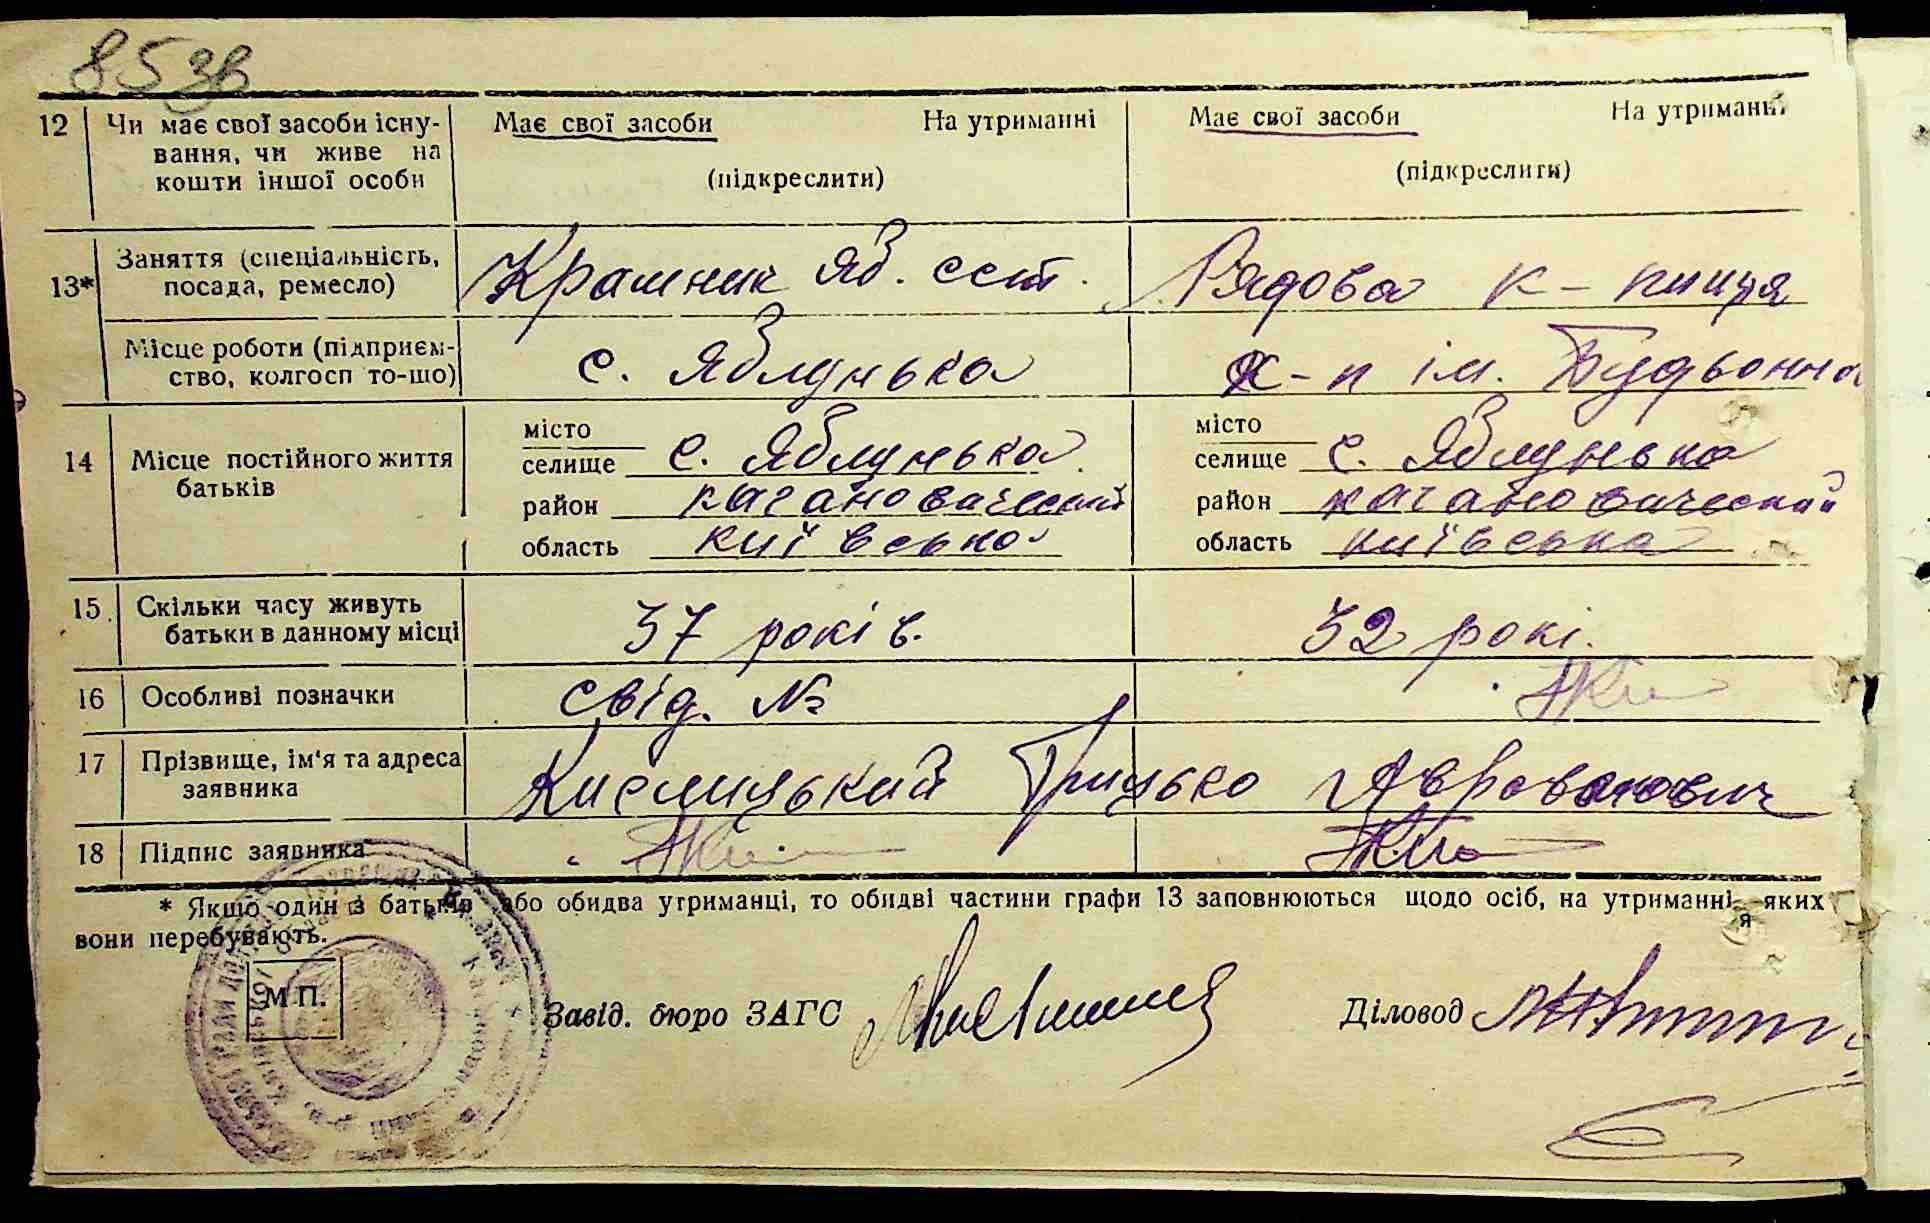 853в
12 Чи має свої засоби існу-
вання, чи живе на
кошти іншої особи
Має свої засоби На утриманні
(підкреслити)
Має свої засоби На утриманні
(підкреслити)
13* Заняття (спеціальність,
посада, ремесло)
Крамник Яб. сст.
Рядова к-пниця
Місце роботи (підприєм-
ство, колгосп то-що)
с. Яблунька
к-п ім. Будьонна
14 Місце постійного життя
батьків
місто
селище с. Яблунька
район кагановический
область київська
місто
селище с. Яблунька
район кагановический
область київська
15 Скільки часу живуть
батьки в данному місці
37 років.
32 рокі.
16 Особливі позначки
свід. №
17 Прізвище, ім'я та адреса
заявника
Кислицький Грицько
18 Підпис заявника
* Якщо один з батьків або обидва утриманці, то обидві частини графи 13 заповнюються щодо осіб, на утриманні яких
вони перебувають.
М.П.
Завід. бюро ЗАГС
Діловод